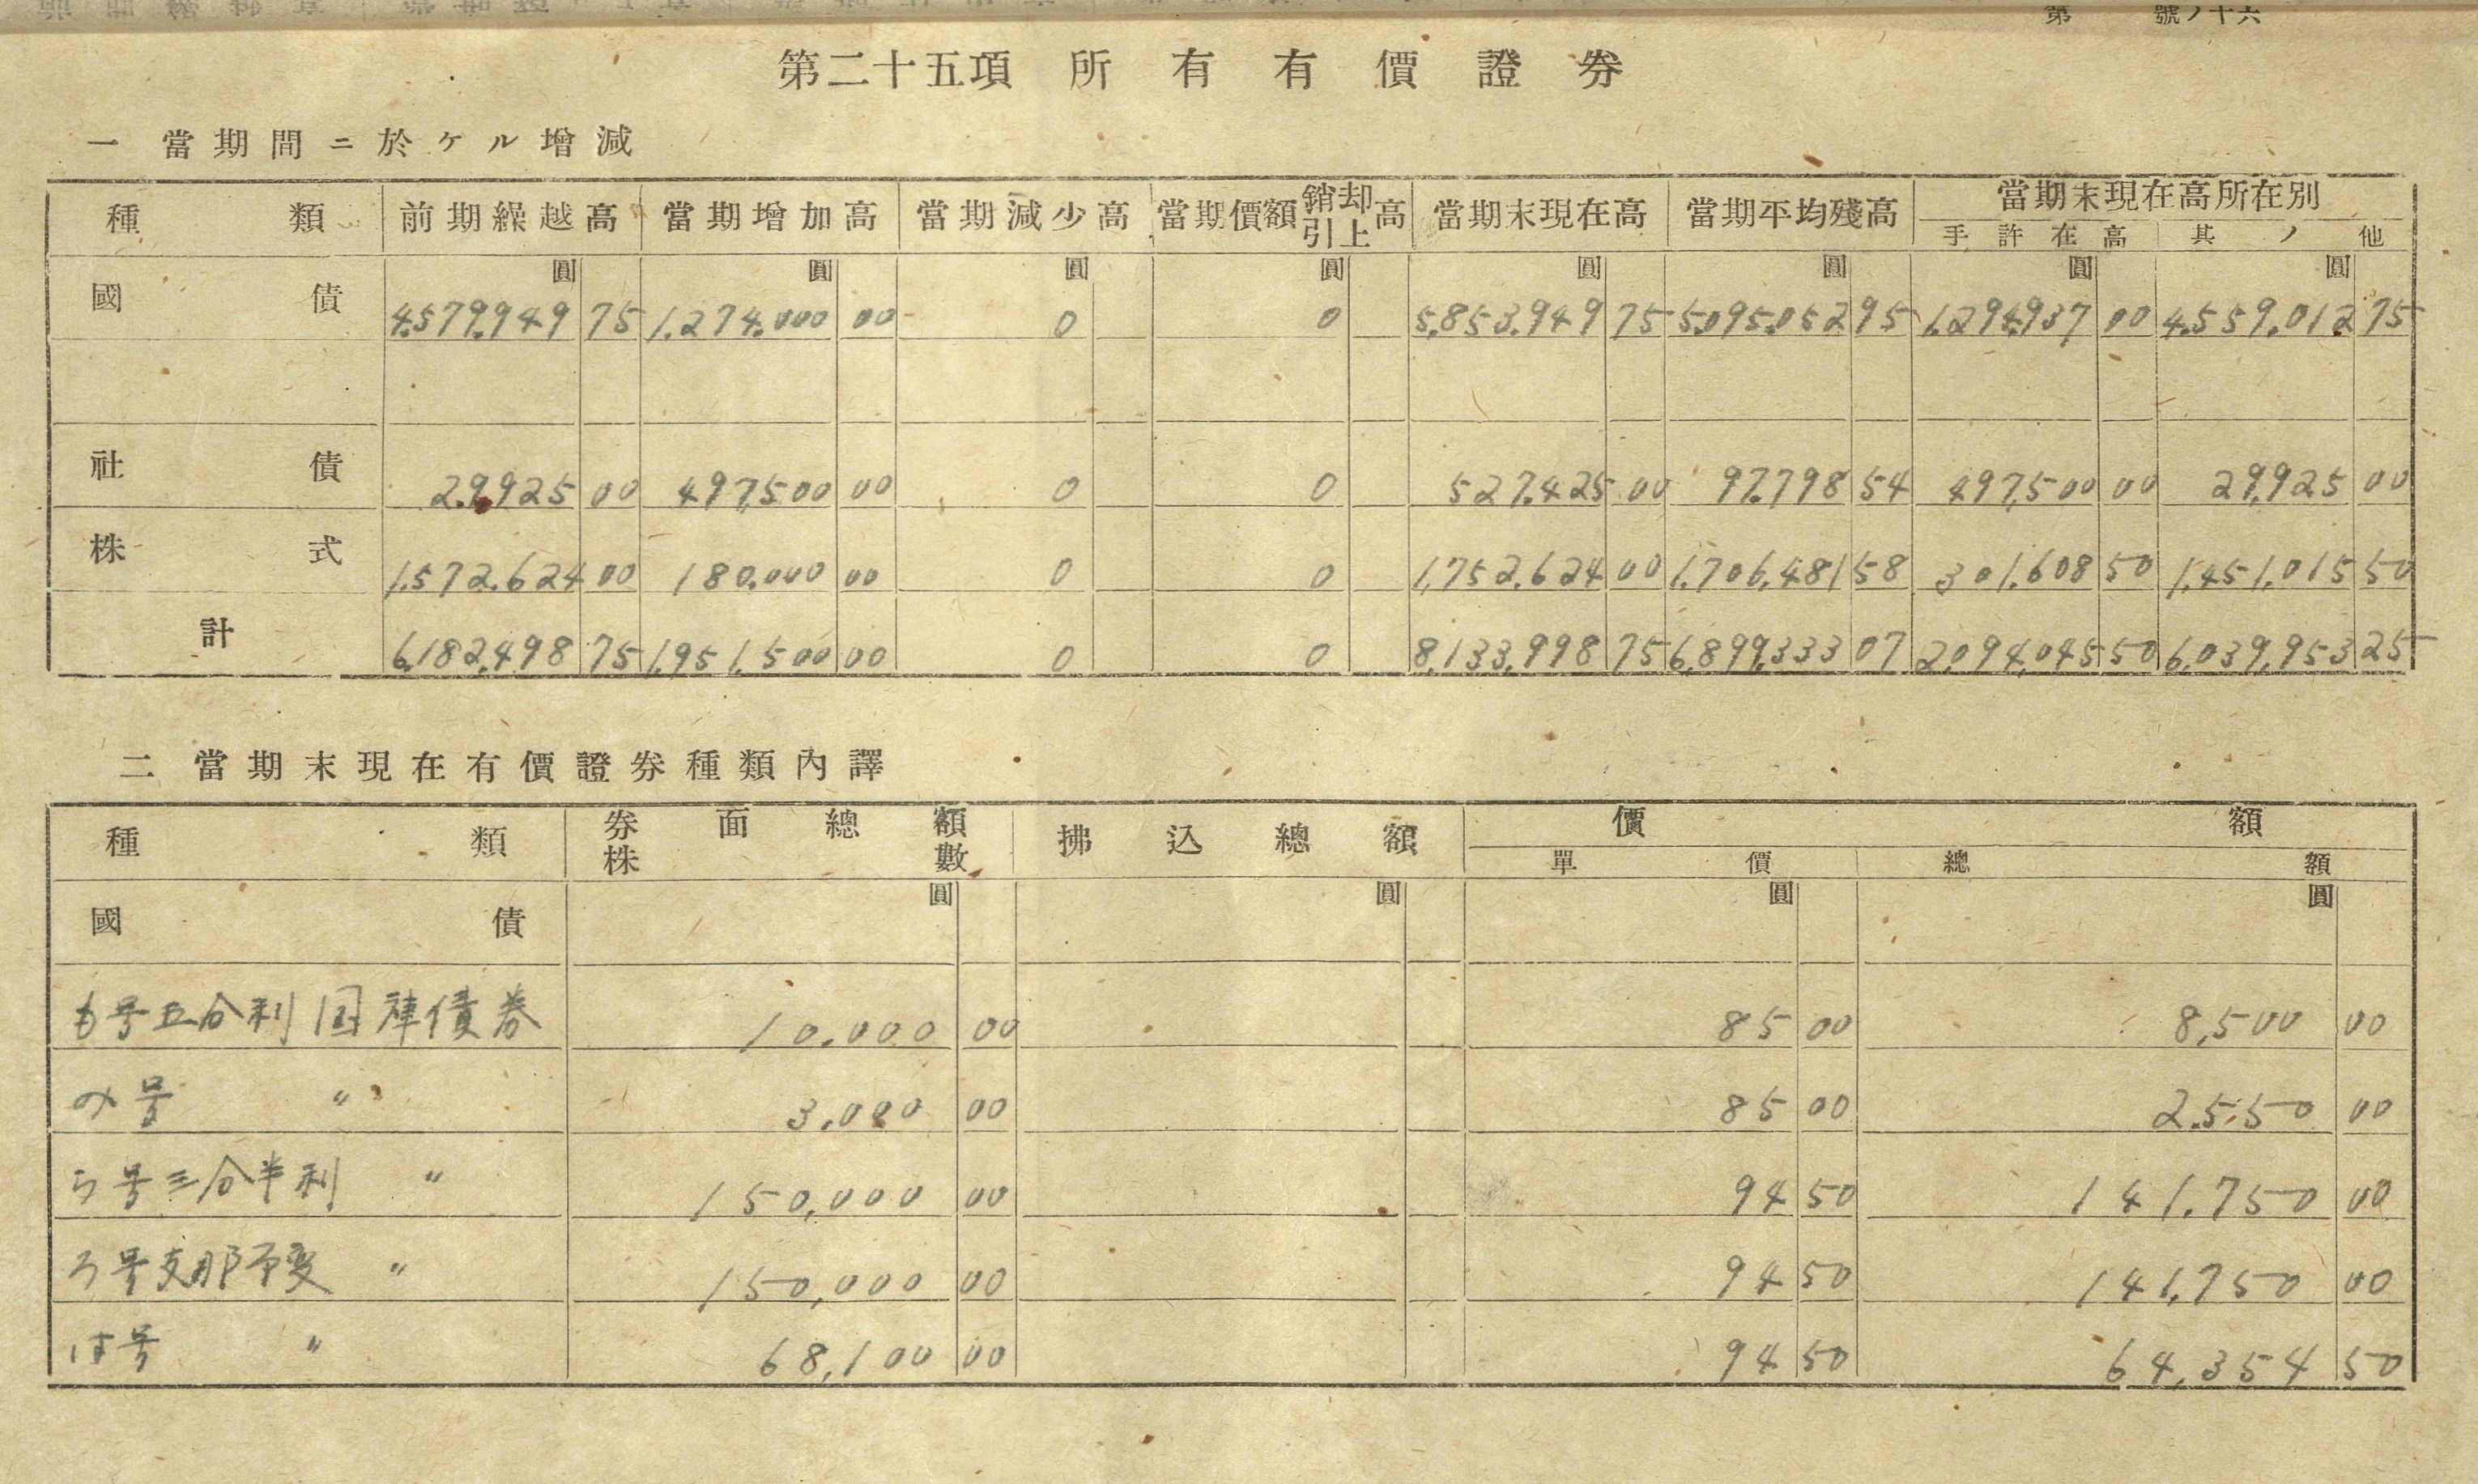 第 號ノ十六
第二十五項 所有有價證券
一 當期間ニ於ケル增減
種類 前期繰越高 當期增加高 當期減少高 當期價額銷却引上高 當期末現在高 當期平均殘高 當期末現在高所在別
手許在高 其ノ他
圓 圓 圓 圓 圓 圓 圓 圓
國債 4.579.949 75 1.274.000 00 0 0 5.853.949 75 5.095.052 95 1.294.937 00 4.559.012 75
社債 29.925 00 497.500 00 0 0 527.425 00 97.798 54 497.500 00 29.925 00
株式 1.572.624 00 180.000 00 0 0 1,752.624 00 1.706.481 58 301.608 50 1.451.015 50
計 6.182.498 75 1.951.500 00 0 0 8,133.998 75 6,899.333 07 2.094.045 50 6.039.953 25
二 當期末現在有價證券種類內譯
種類 券面總額 株數 拂込總額 價額
單價 總額
國債 圓 圓 圓 圓
も号五分利国庫債券 10.000 00 85 00 8,500 00
み号 〃 3.000 00 85 00 2.550 00
う号三分半利 〃 150,000 00 94 50 141.750 00
ろ号支那事変 〃 150,000 00 94 50 141.750 00
は号 〃 68,100 00 94 50 64,354 50